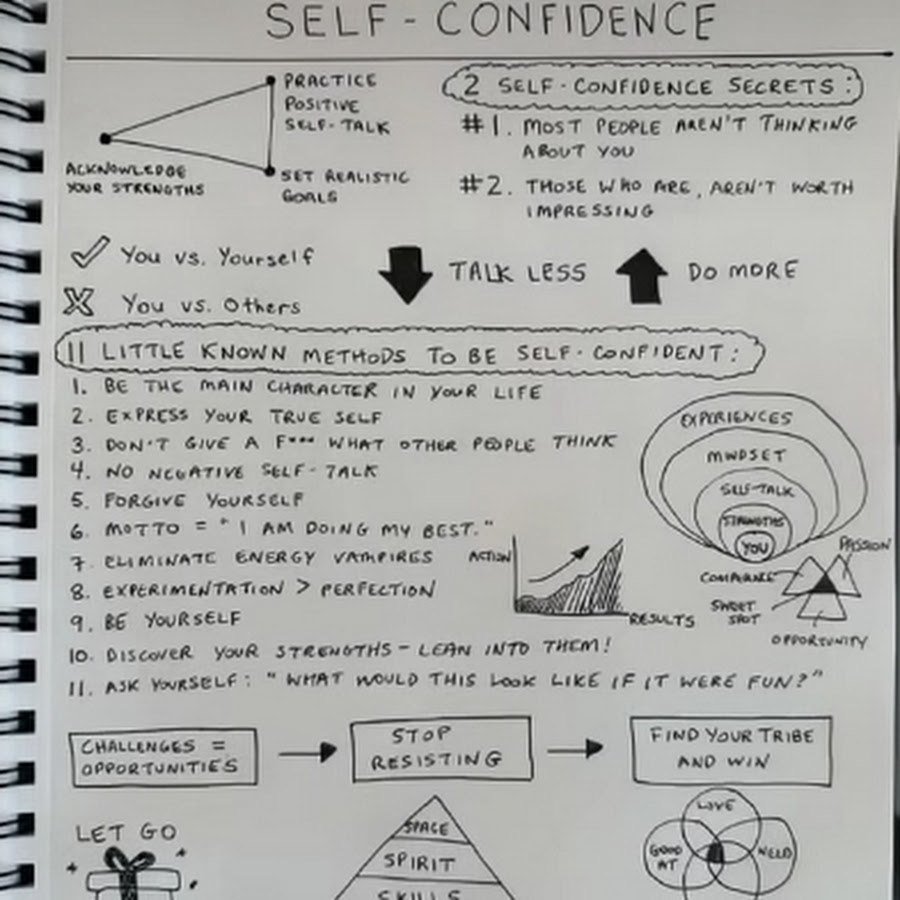 SELF-CONFIDENCE
PRACTICE
POSITIVE
SELF-TALK
ACKNOWLEDGE
YOUR STRENGTHS
SET REALISTIC
GOALS
2 SELF-CONFIDENCE SECRETS:
#1. MOST PEOPLE AREN'T THINKING
ABOUT YOU
#2. THOSE WHO ARE, AREN'T WORTH
IMPRESSING
You vs. Yourself
You vs. Others
TALK LESS
DO MORE
11 LITTLE KNOWN METHODS TO BE SELF-CONFIDENT:
1. BE THE MAIN CHARACTER IN YOUR LIFE
2. EXPRESS YOUR TRUE SELF
3. DON'T GIVE A F*** WHAT OTHER PEOPLE THINK
4. NO NEGATIVE SELF-TALK
5. FORGIVE YOURSELF
6. MOTTO = "I AM DOING MY BEST."
7. ELIMINATE ENERGY VAMPIRES
8. EXPERIMENTATION > PERFECTION
9. BE YOURSELF
10. DISCOVER YOUR STRENGTHS - LEAN INTO THEM!
11. ASK YOURSELF: "WHAT WOULD THIS LOOK LIKE IF IT WERE FUN?"
EXPERIENCES
MINDSET
SELF-TALK
STRENGTHS
YOU
ACTION
RESULTS
PASSION
SWEET
SPOT
OPPORTUNITY
CHALLENGES =
OPPORTUNITIES
STOP
RESISTING
FIND YOUR TRIBE
AND WIN
LET GO
SPACE
SPIRIT
SKILLS
LOVE
GOOD
AT